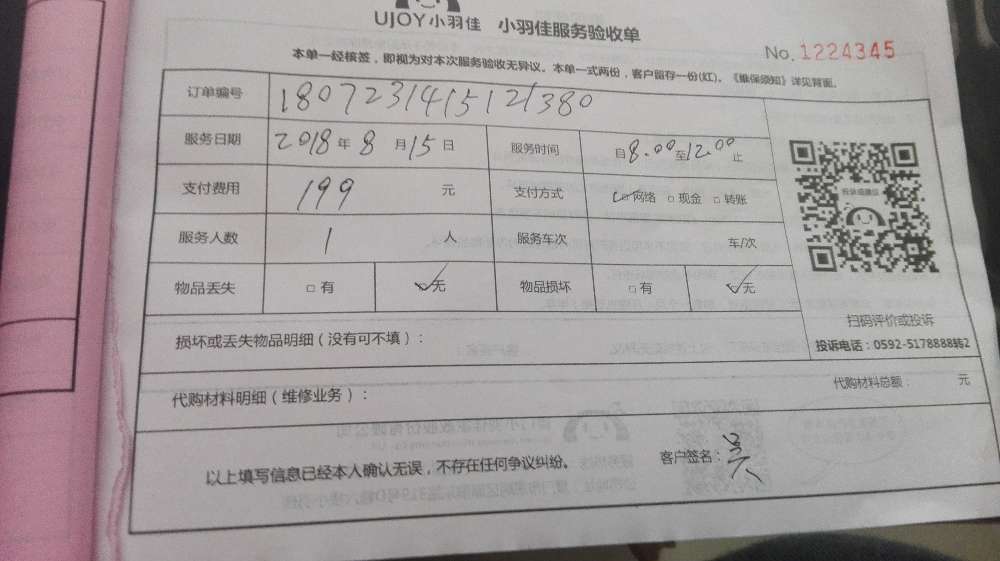 UJOY小羽佳 小羽佳服务验收单
No. 1224345
本单一经核签，即视为对本次服务验收无异议。本单一式两份，客户留存一份(红)。《维保须知》详见背面。
订单编号 1807231415121380
服务日期 2018年8月15日 服务时间 自8.00至12.00止
支付费用 199 元 支付方式 ☑网络 □现金 □转账
服务人数 1 人 服务车次 车/次
物品丢失 □有 ☑无 物品损坏 □有 ☑无
投诉或建议
扫码评价或投诉
投诉电话：0592-5178888转2
损坏或丢失物品明细（没有可不填）：
代购材料明细（维修业务）： 代购材料总额： 元
以上填写信息已经本人确认无误，不存在任何争议纠纷。 客户签名：吴